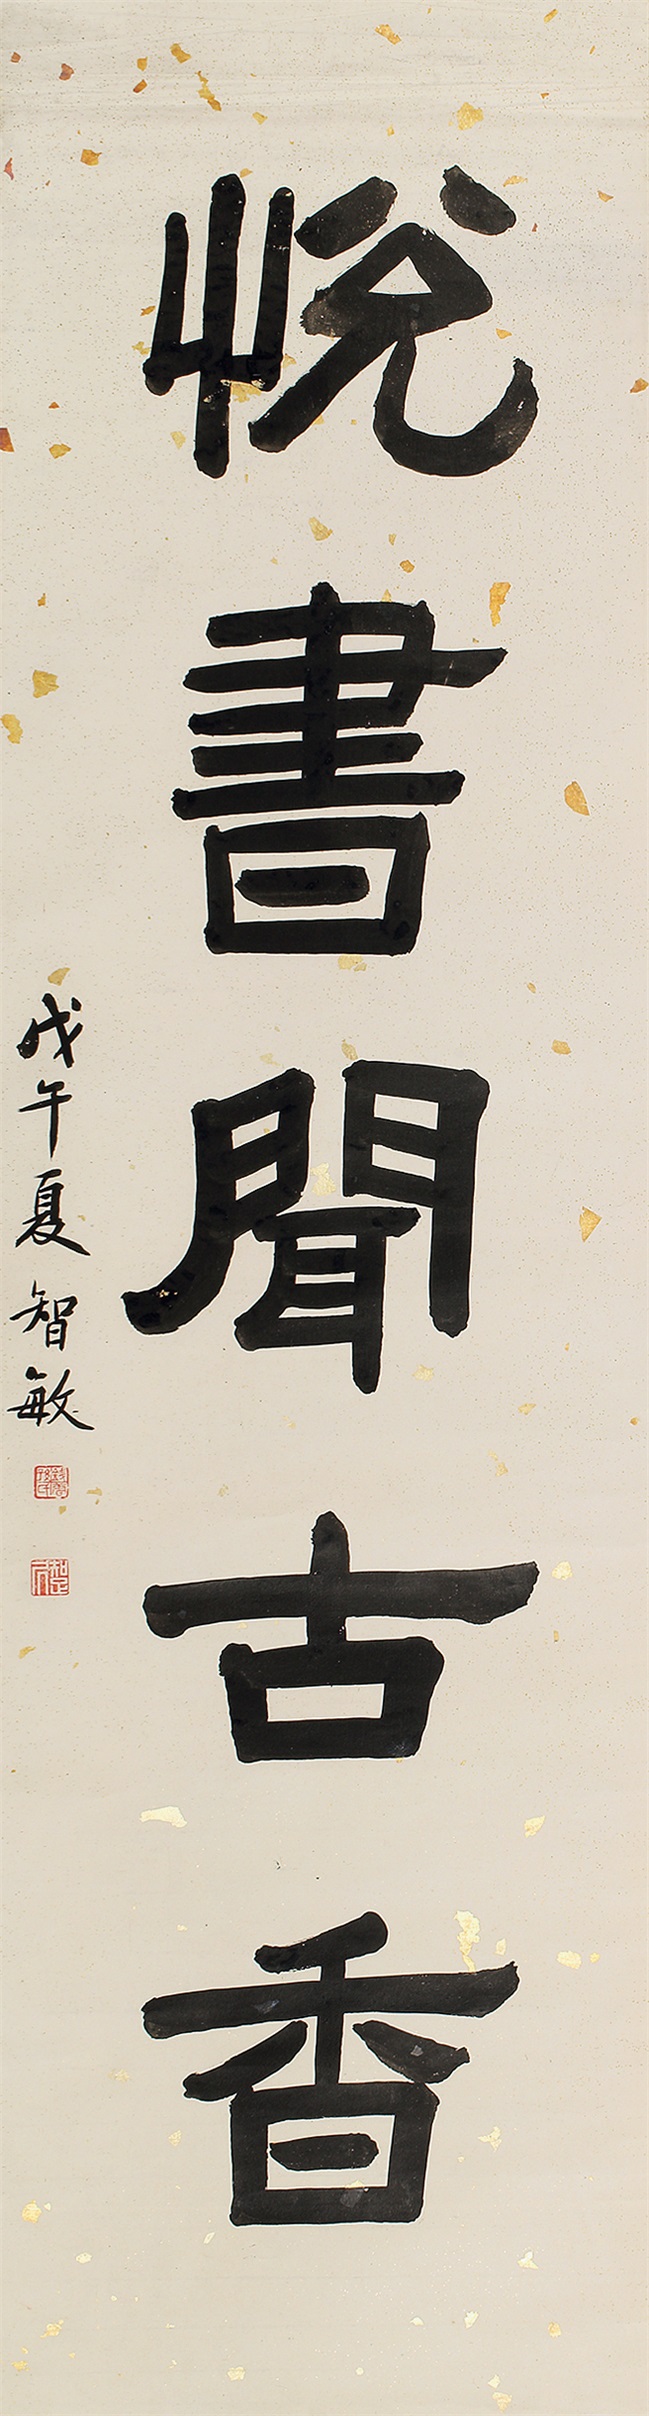 悅書聞古香
戊午夏智敏